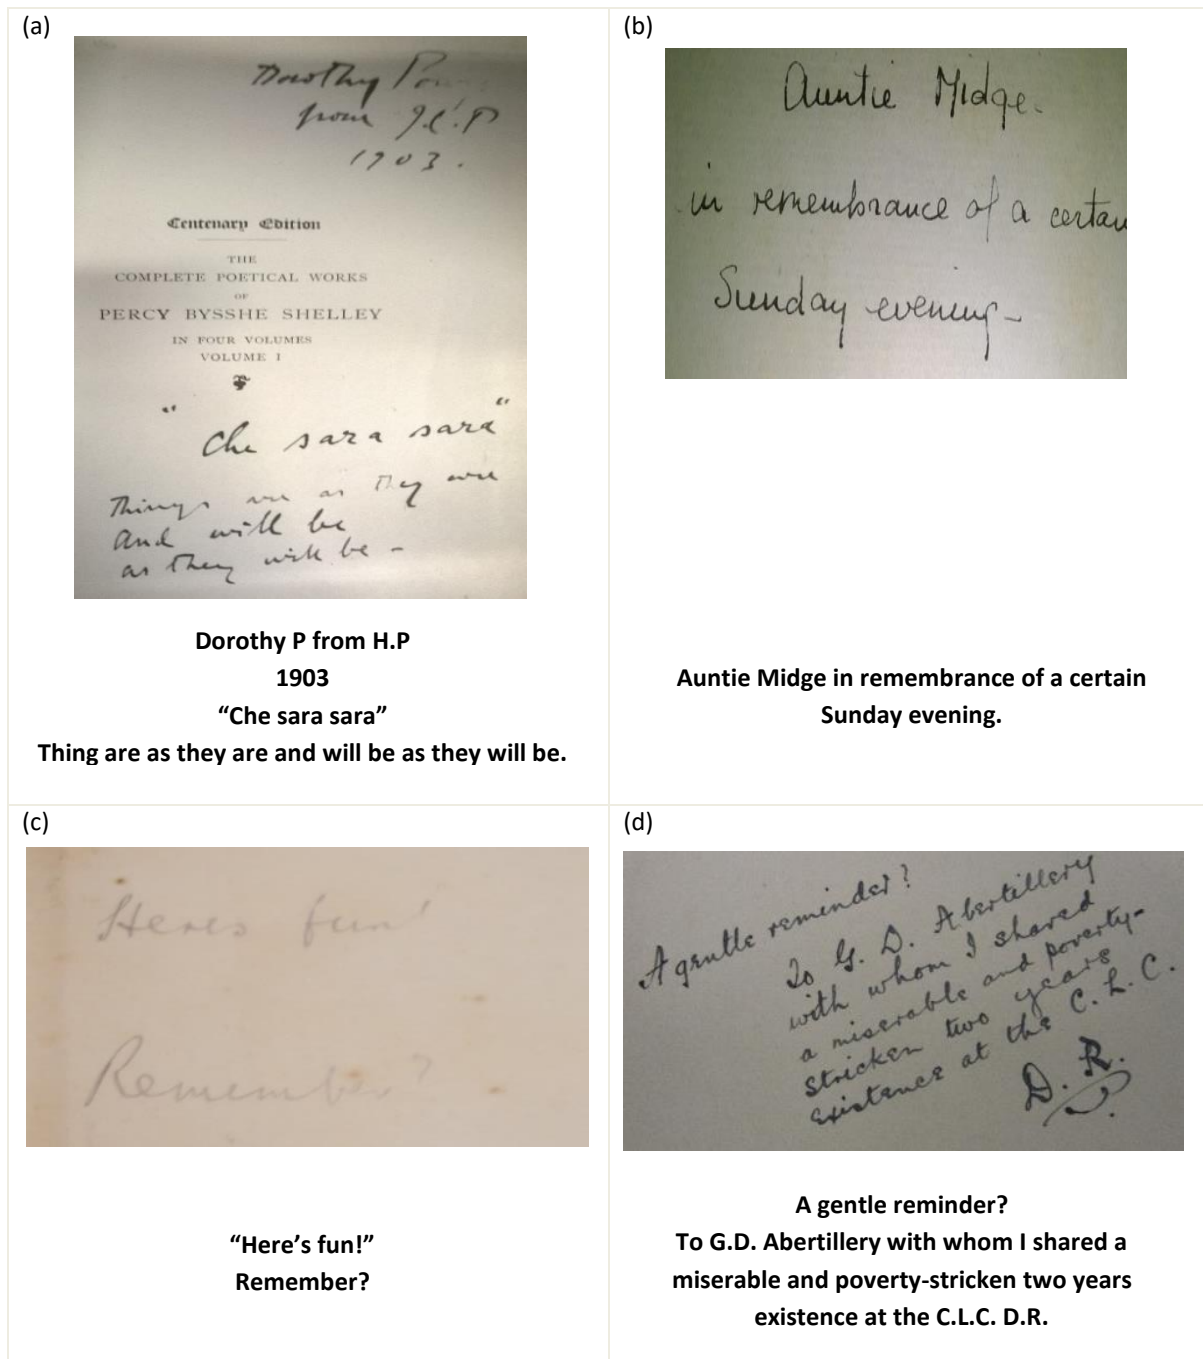 (a)
Dorothy
from J.C.P
1903.
Centenary Edition
THE
COMPLETE POETICAL WORKS
OF
PERCY BYSSHE SHELLEY
IN FOUR VOLUMES
VOLUME I
"Che sara sara"
Things are as they are
and will be
as they will be -
Dorothy P from H.P
1903
“Che sara sara”
Thing are as they are and will be as they will be.
(b)
Auntie Midge.
in remembrance of a certain
Sunday evening -
Auntie Midge in remembrance of a certain
Sunday evening.
(c)
Heres fun!
Remember?
“Here’s fun!”
Remember?
(d)
A gentle reminder?
To G. D. Abertillery
with whom I shared
a miserable and poverty-
stricken two years
existence at the C. L. C.
D. R.
A gentle reminder?
To G.D. Abertillery with whom I shared a
miserable and poverty-stricken two years
existence at the C.L.C. D.R.